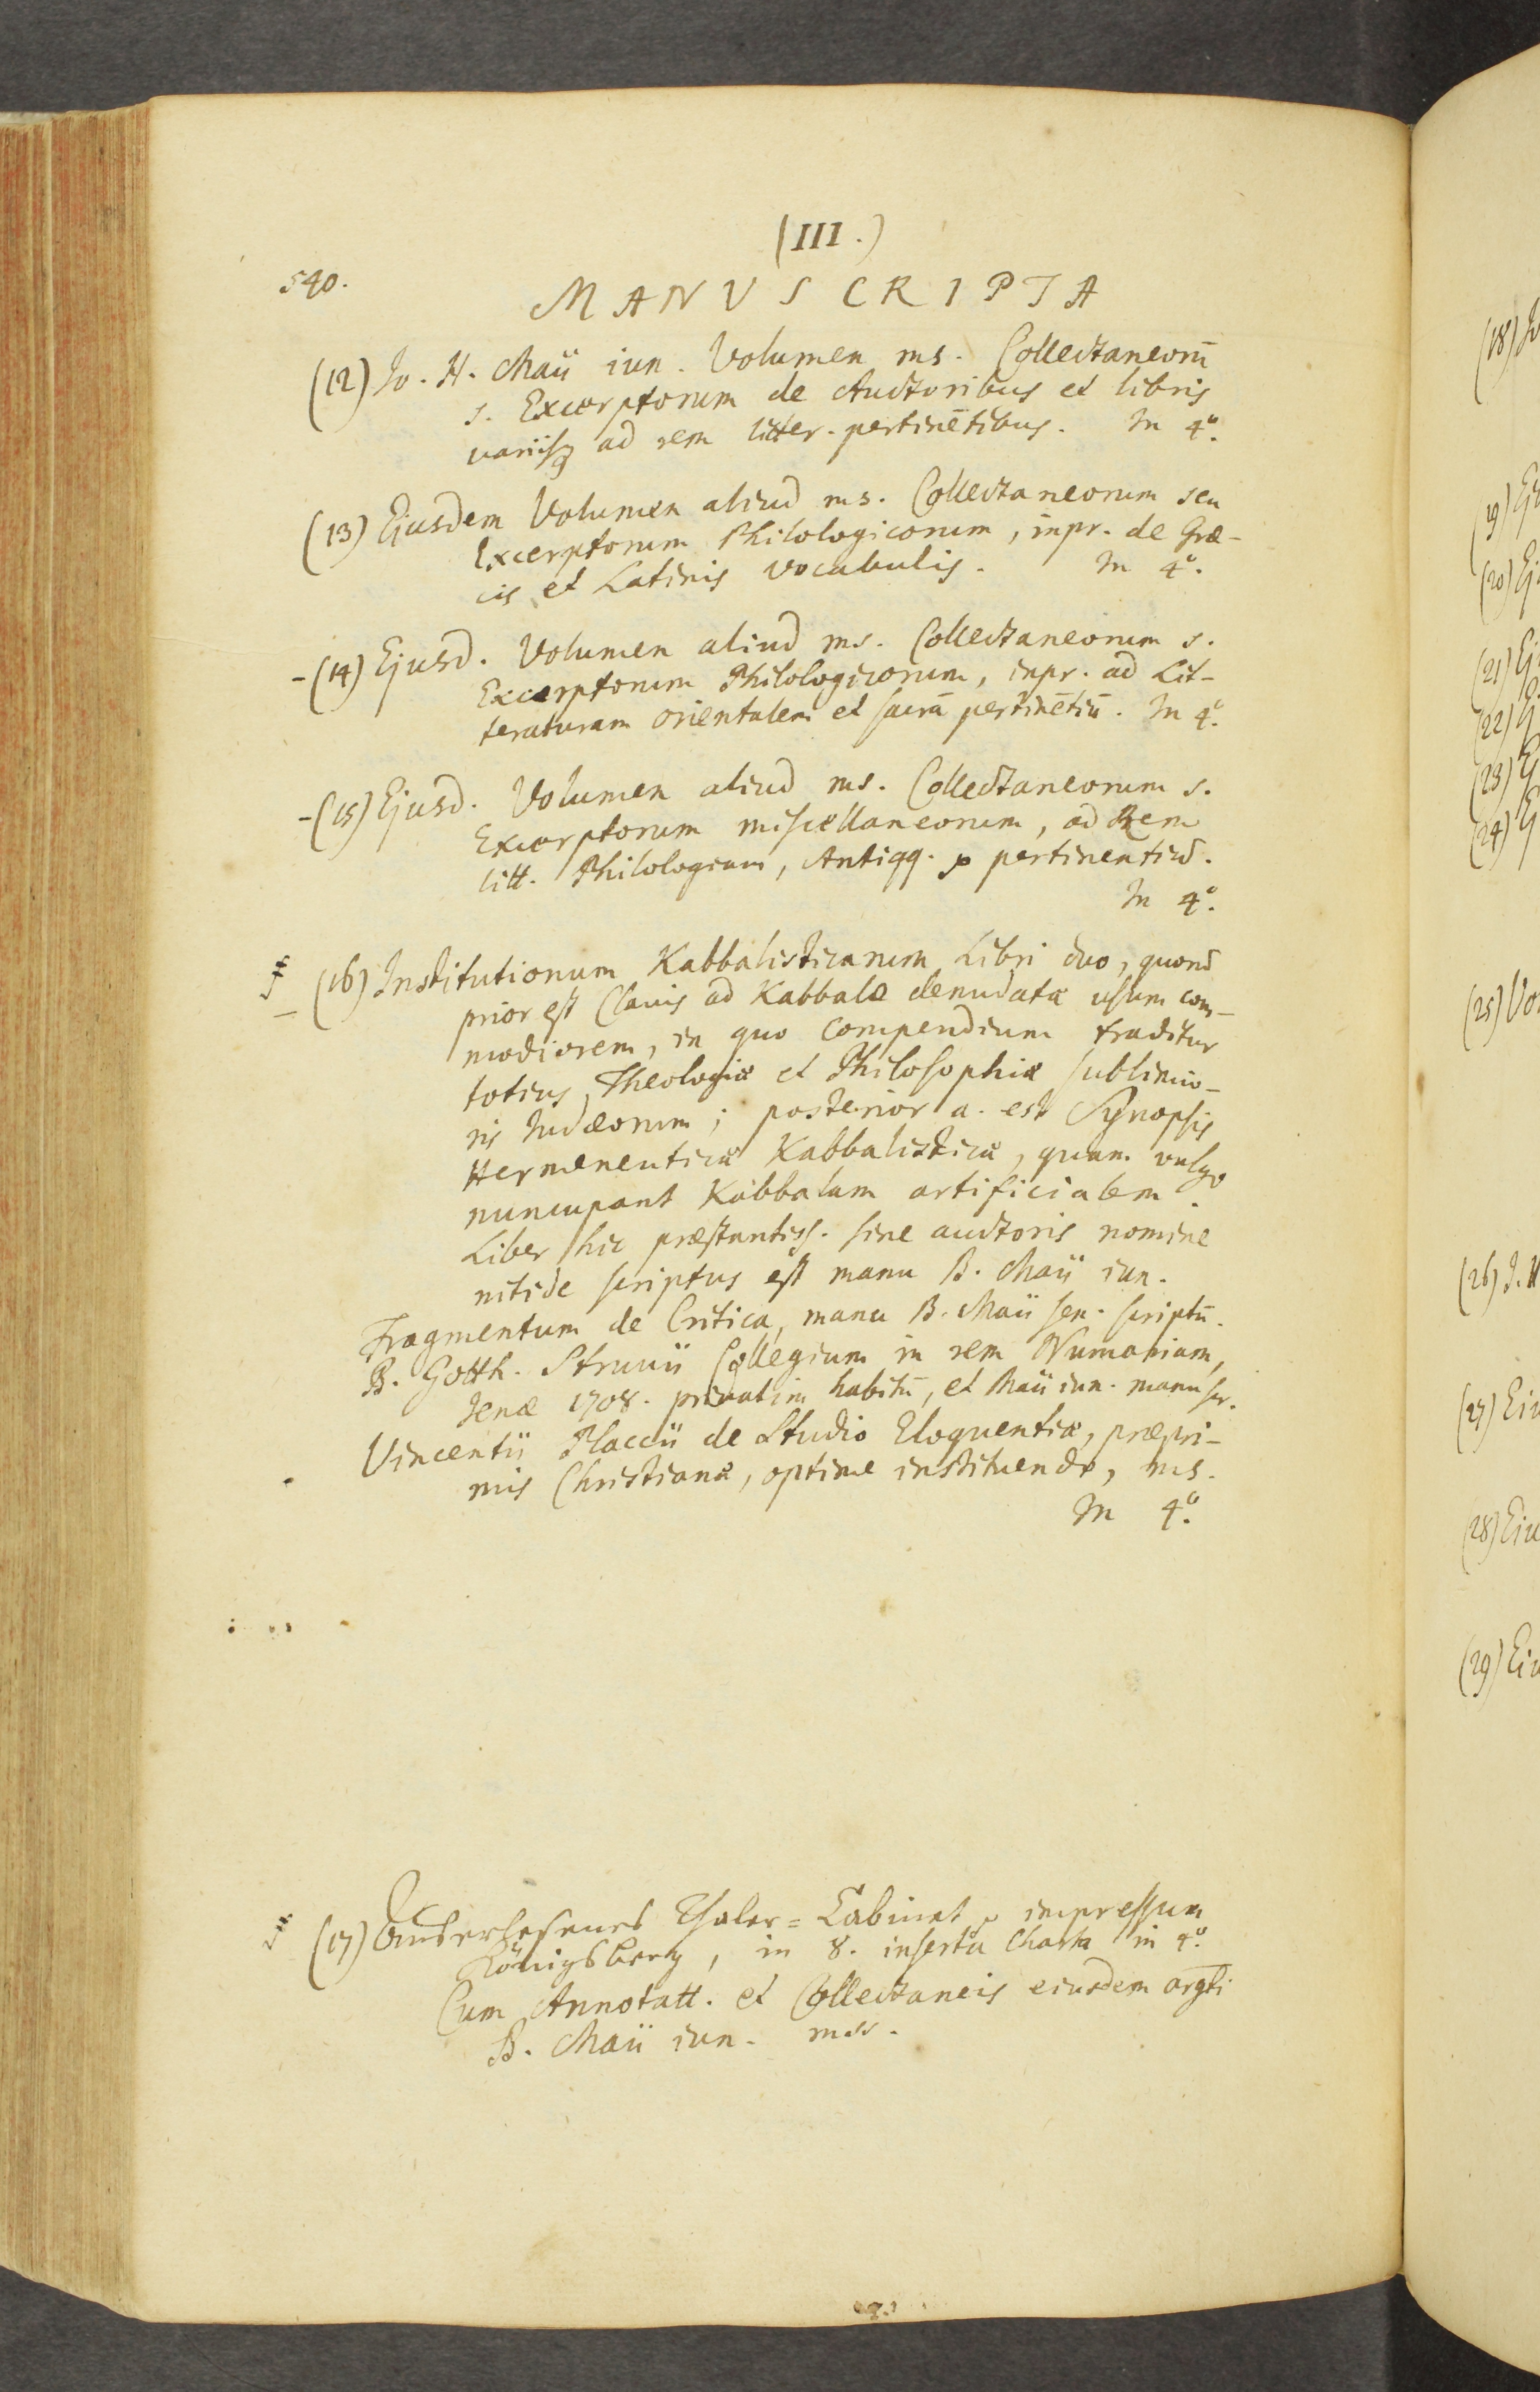 (III.)
540.
MANUSCRIPTA
(12) Jo. H. Maii iun. Volumen ms. Collectaneorū
s. Excerptorum de Auctoribus et libris
variisq ad rem litter. pertinētibus. In 4°.
(13) Ejusdem Volumen aliud ms. Collectaneorum seu
Excerptorum Philologicorum, inpr. de Græ-
cis et Latinis vocabulis. In 4°.
-(14) Ejusd. Volumen aliud ms. Collectaneorum s.
Excerptorum Philologicorum, inpr. ad Lit-
teraturam orientalem et sacrā pertinētiū. In 4°.
-(15) Ejusd. Volumen aliud ms. Collectaneorum s.
Excerptorum miscellaneorum, ad Rem
litt. Philologiam, Antiqq. pertinentiū.
In 4°.
(16) Institutionum Kabbalisticarum Libri duo, quorū
prior est Clavis ad Kabbalæ denudatæ usum com-
modiorem, in quo compendium traditur
totius Theologiæ et Philosophiæ sublimio-
ris Judæorum; posterior a. est Synopsis
Hermeneuticæ Kabbalisticæ, quam vulgo
nuncupant Kabbalam artificialem.
Liber hic præstantiss. sine auctoris nomine
nitide scriptus est manu B. Maii iun.
Fragmentum de Critica, manu B. Maii sen. scriptū.
B. Gotth. Struvii Collegium in rem Numariam,
Jenæ 1708. privatim habitū, et Maii iun. manu scr.
Vincentii Placcii de Studio Eloquentiæ, præpri-
mis Christianæ, optime instituendo, ms.
In 4°.
(17) Auserlesenes Thaler=Cabinet, impressum
Königsberg, in 8. inserta charta in 4°.
Cum Annotatt. et Collectaneis eiusdem argti
B. Maii iun. mss.
(18) Jo
(19) Ej
(20) Ej
(21) Ej
(22)
(23) E
(24) E
(25) Vo
(26) J. H
(27) Eiu
(28) Eiu
(29) Eiu